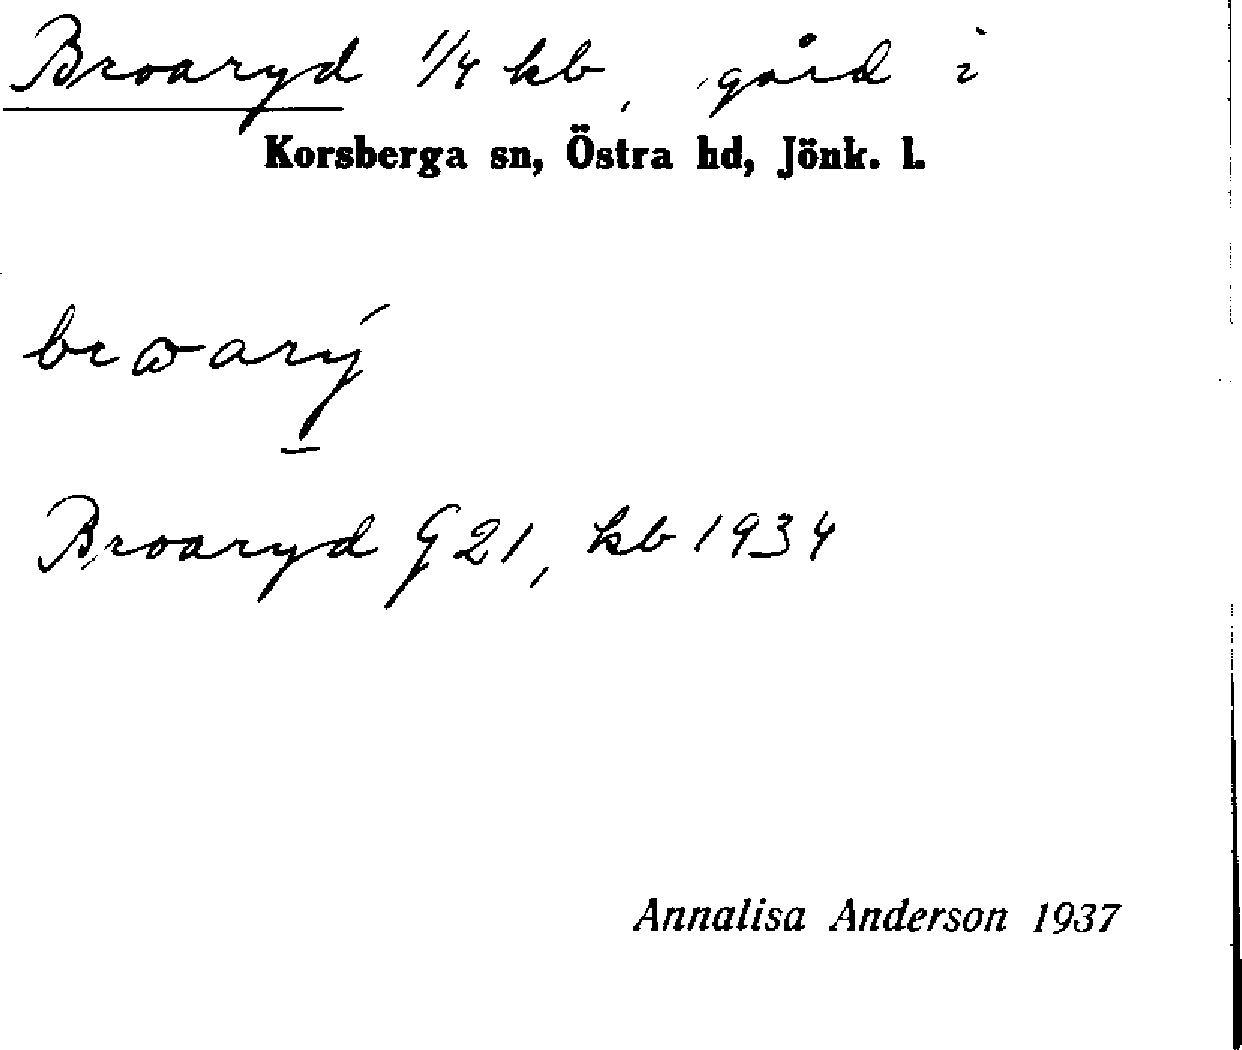 Broaryd 1/4 kb, gård i
Korsberga sn, Östra hd, Jönk. l.
Broaryd G 21, kb 1934
Annalisa Anderson 1937